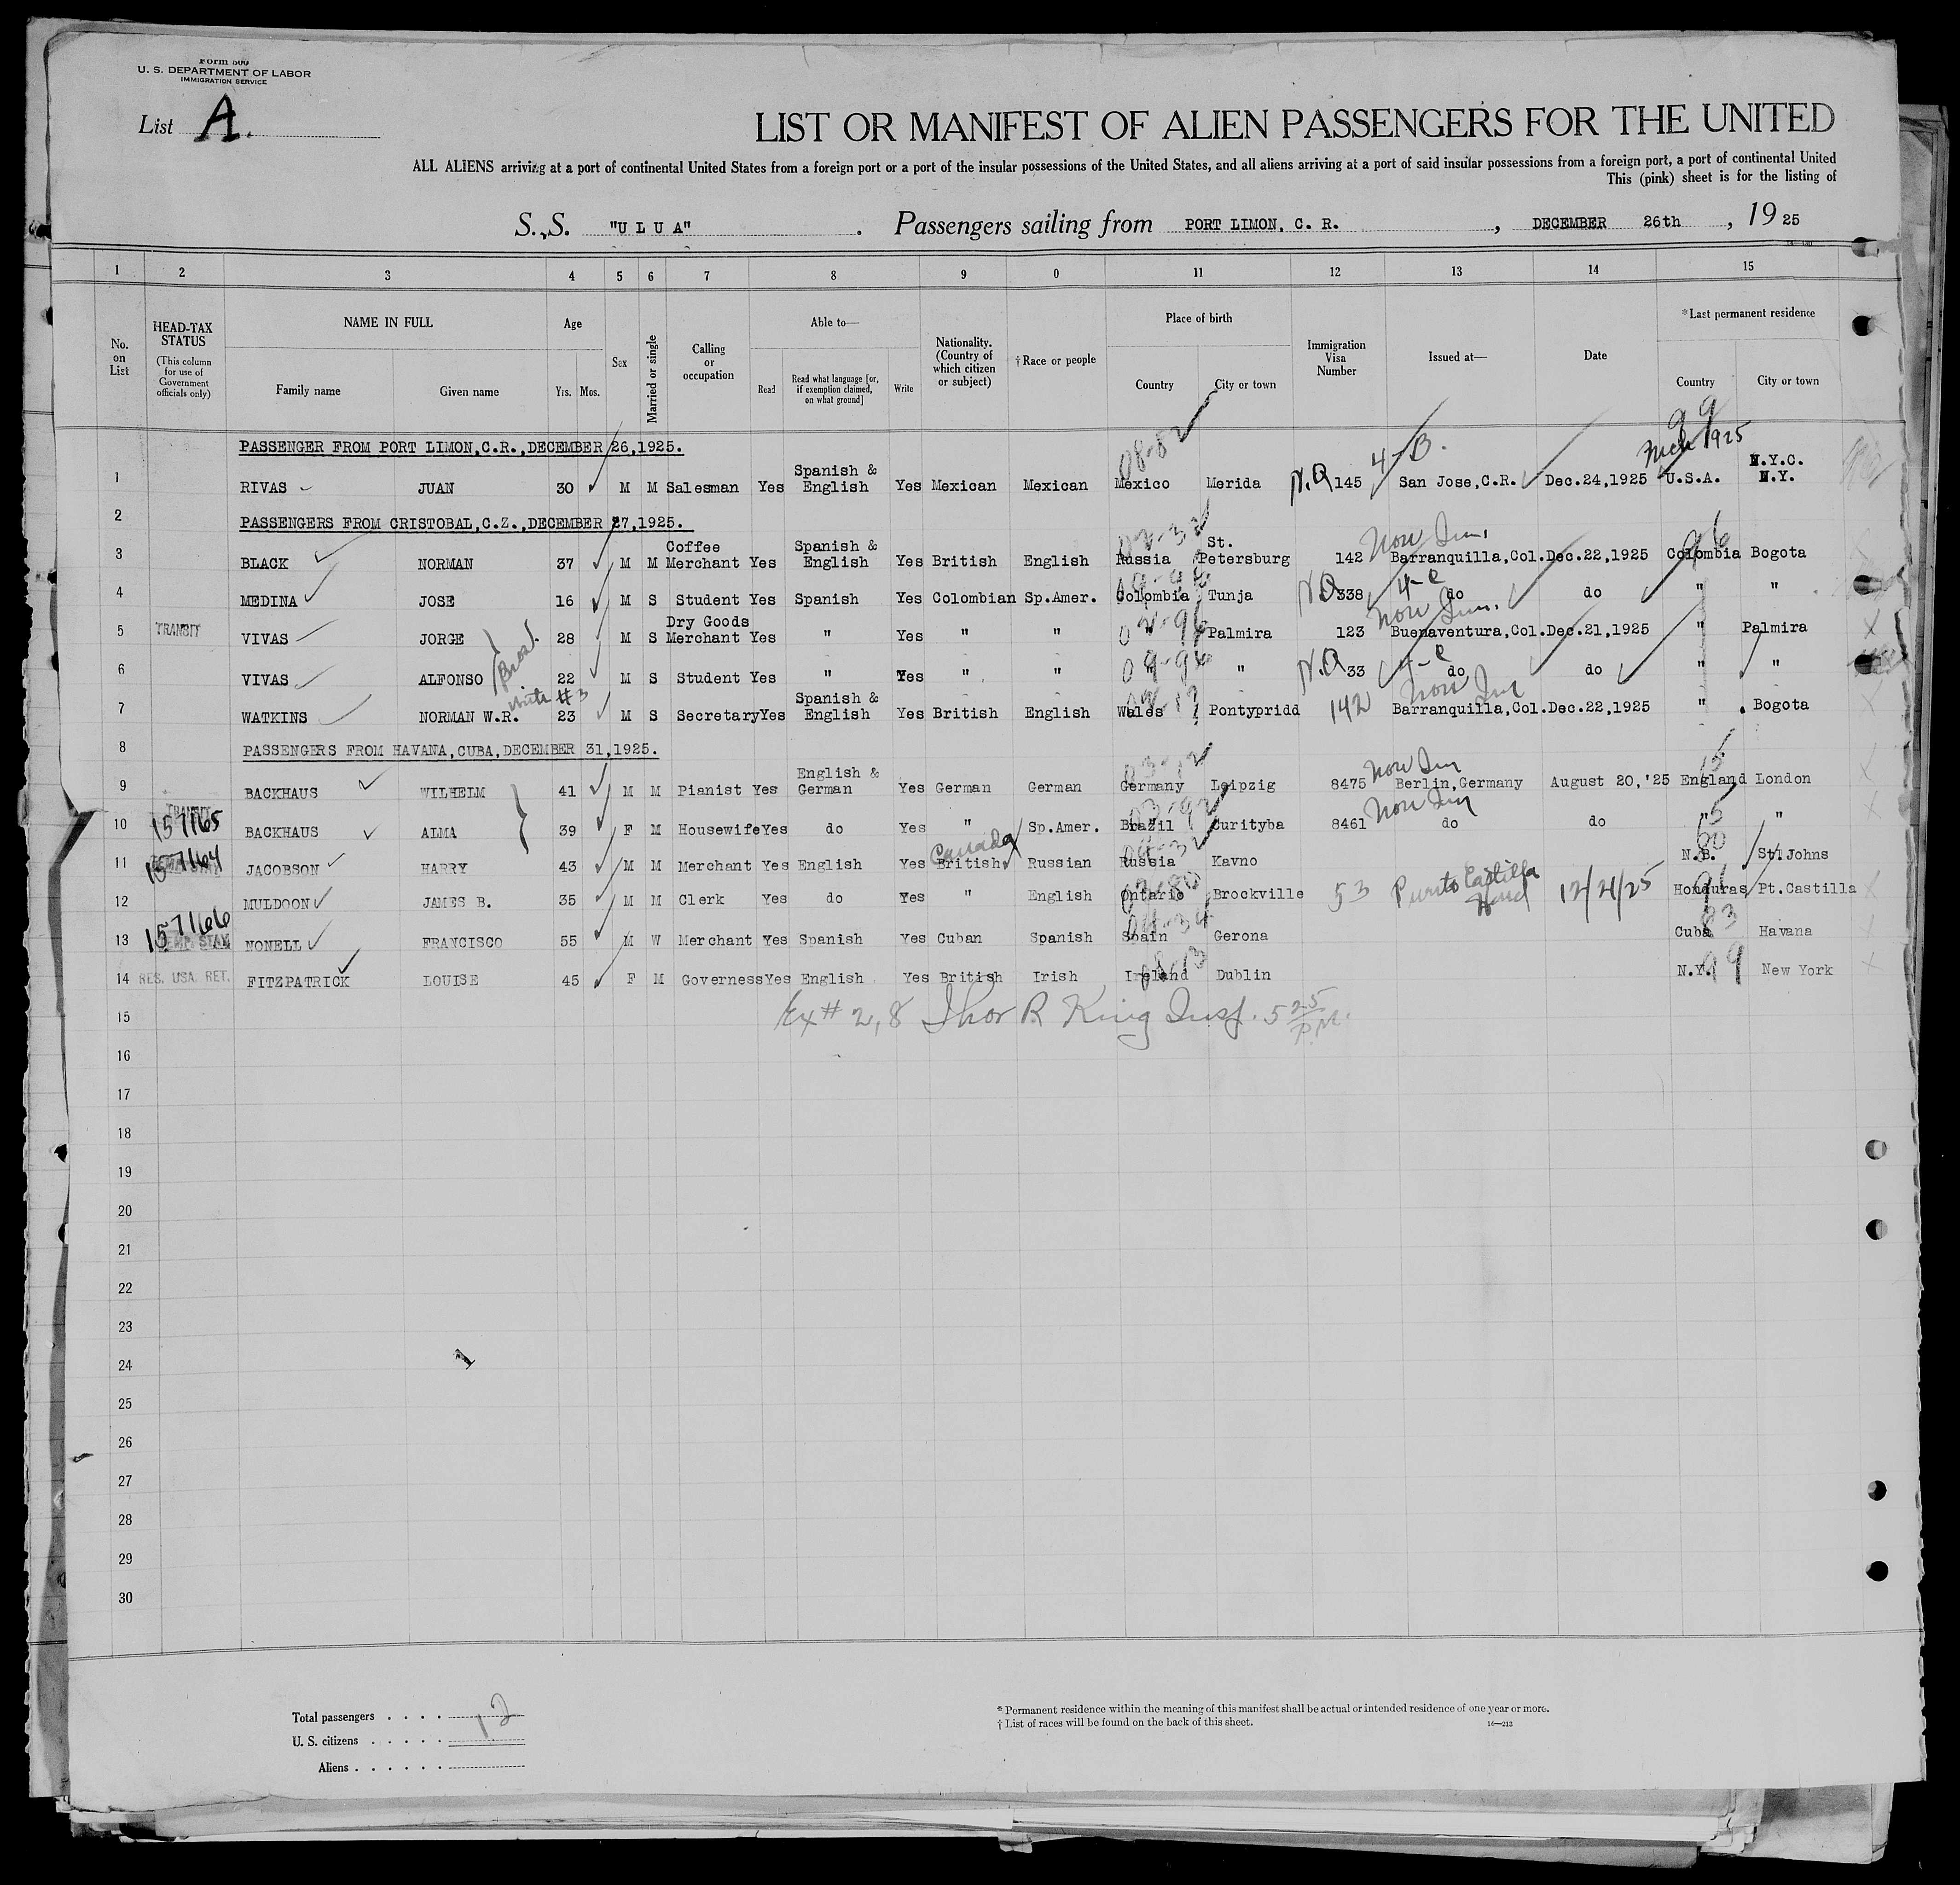 Form 500
U. S. DEPARTMENT OF LABOR
IMMIGRATION SERVICE
List A.
LIST OR MANIFEST OF ALIEN PASSENGERS FOR THE UNITED
ALL ALIENS arriving at a port of continental United States from a foreign port or a port of the insular possessions of the United States, and all aliens arriving at a port of said insular possessions from a foreign port, a port of continental United
This (pink) sheet is for the listing of
S. S. "U L U A" . Passengers sailing from PORT LIMON, C. R. , DECEMBER 26th , 19 25
1 2 3 4 5 6 7 8 9 0 11 12 13 14 15
No. on List
HEAD-TAX STATUS
(This column for use of Government officials only)
NAME IN FULL
Family name Given name
Age
Yrs. Mos.
Sex
Married or single
Calling or occupation
Able to—
Read
Read what language [or, if exemption claimed, on what ground]
Write
Nationality. (Country of which citizen or subject)
†Race or people
Place of birth
Country City or town
Immigration Visa Number
Issued at—
Date
*Last permanent residence
Country City or town
PASSENGER FROM PORT LIMON,C.R.,DECEMBER 26,1925.
1 RIVAS JUAN 30 M M Salesman Yes Spanish & English Yes Mexican Mexican Mexico Merida 08-82 145 4-B. San Jose,C.R. Dec.24,1925 U.S.A. N.Y.C. N.Y. 99 1925
2 PASSENGERS FROM CRISTOBAL,C.Z.,DECEMBER 27,1925.
3 BLACK NORMAN 37 M M Coffee Merchant Yes Spanish & English Yes British English Russia St. Petersburg 142 Non Im. Barranquilla,Col. Dec.22,1925 Colombia Bogota 96
4 MEDINA JOSE 16 M S Student Yes Spanish Yes Colombian Sp.Amer. Colombia Tunja 338 4-e do do " "
5 TRANSIT VIVAS JORGE 28 M S Dry Goods Merchant Yes " Yes " " " Palmira 123 Non Im. Buenaventura,Col. Dec.21,1925 " Palmira
Bros.
6 VIVAS ALFONSO 22 M S Student Yes " Yes " " " " 33 4-e do do " "
with #3
7 WATKINS NORMAN W.R. 23 M S Secretary Yes Spanish & English Yes British English Wales Pontypridd 142 Non Im Barranquilla,Col. Dec.22,1925 " Bogota
8 PASSENGERS FROM HAVANA,CUBA,DECEMBER 31,1925.
9 BACKHAUS WILHELM 41 M M Pianist Yes English & German Yes German German Germany Leipzig 8475 Non Im Berlin,Germany August 20,'25 England London
10 157165 BACKHAUS ALMA 39 F M Housewife Yes do Yes " Sp.Amer. Brazil Curityba 8461 Non Im do do " "
11 157164 JACOBSON HARRY 43 M M Merchant Yes English Yes Canada British Russian Russia Kavno N.B. St. Johns
12 MULDOON JAMES B. 35 M M Clerk Yes do Yes " English Ontario Brockville 53 Puerto Castilla Hond 12/21/25 Honduras Pt.Castilla
13 157166 TEMP. STAY NONELL FRANCISCO 55 M W Merchant Yes Spanish Yes Cuban Spanish Spain Gerona Cuba Havana 83
14 RES. USA. RET. FITZPATRICK LOUISE 45 F M Governess Yes English Yes British Irish Ireland Dublin N.Y. New York 99
15 Ex# 2,8 Thor R King Insp. 5 25 P.M.
16
17
18
19
20
21
22
23
24
25
26
27
28
29
30
Total passengers . . . . 12
U. S. citizens . . . . .
Aliens . . . . . .
* Permanent residence within the meaning of this manifest shall be actual or intended residence of one year or more.
† List of races will be found on the back of this sheet. 16—213